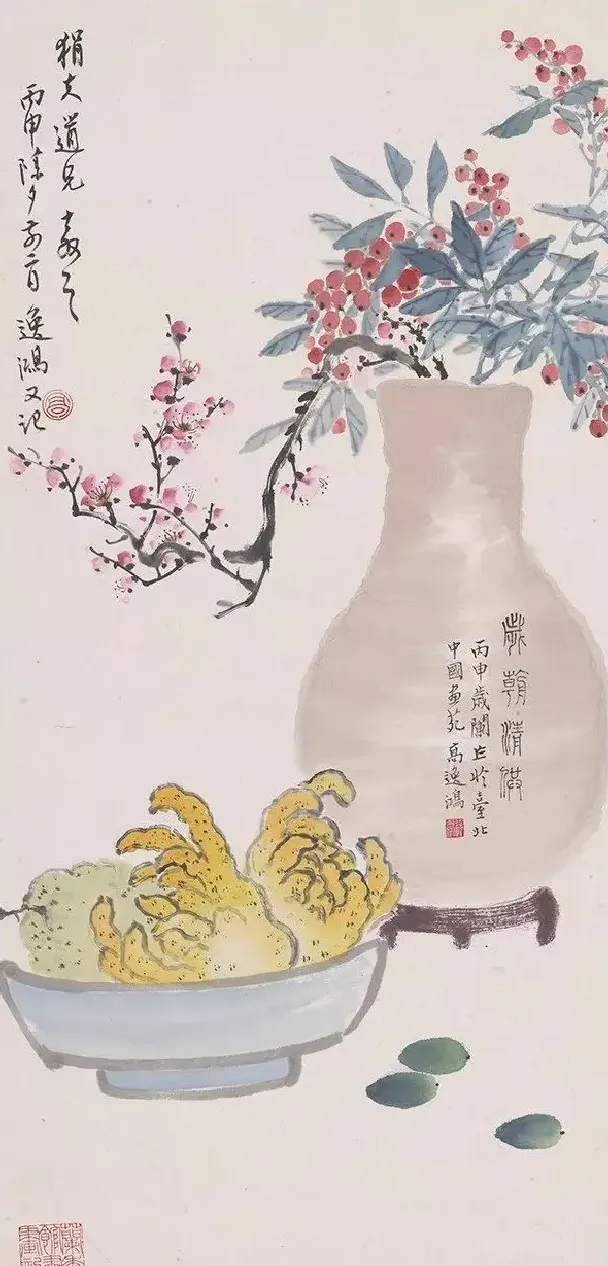 狷夫道兄
丙申除夕前 逸鴻又記
歲朝清供
丙申歲闌作於臺北
中國畫苑 高逸鴻